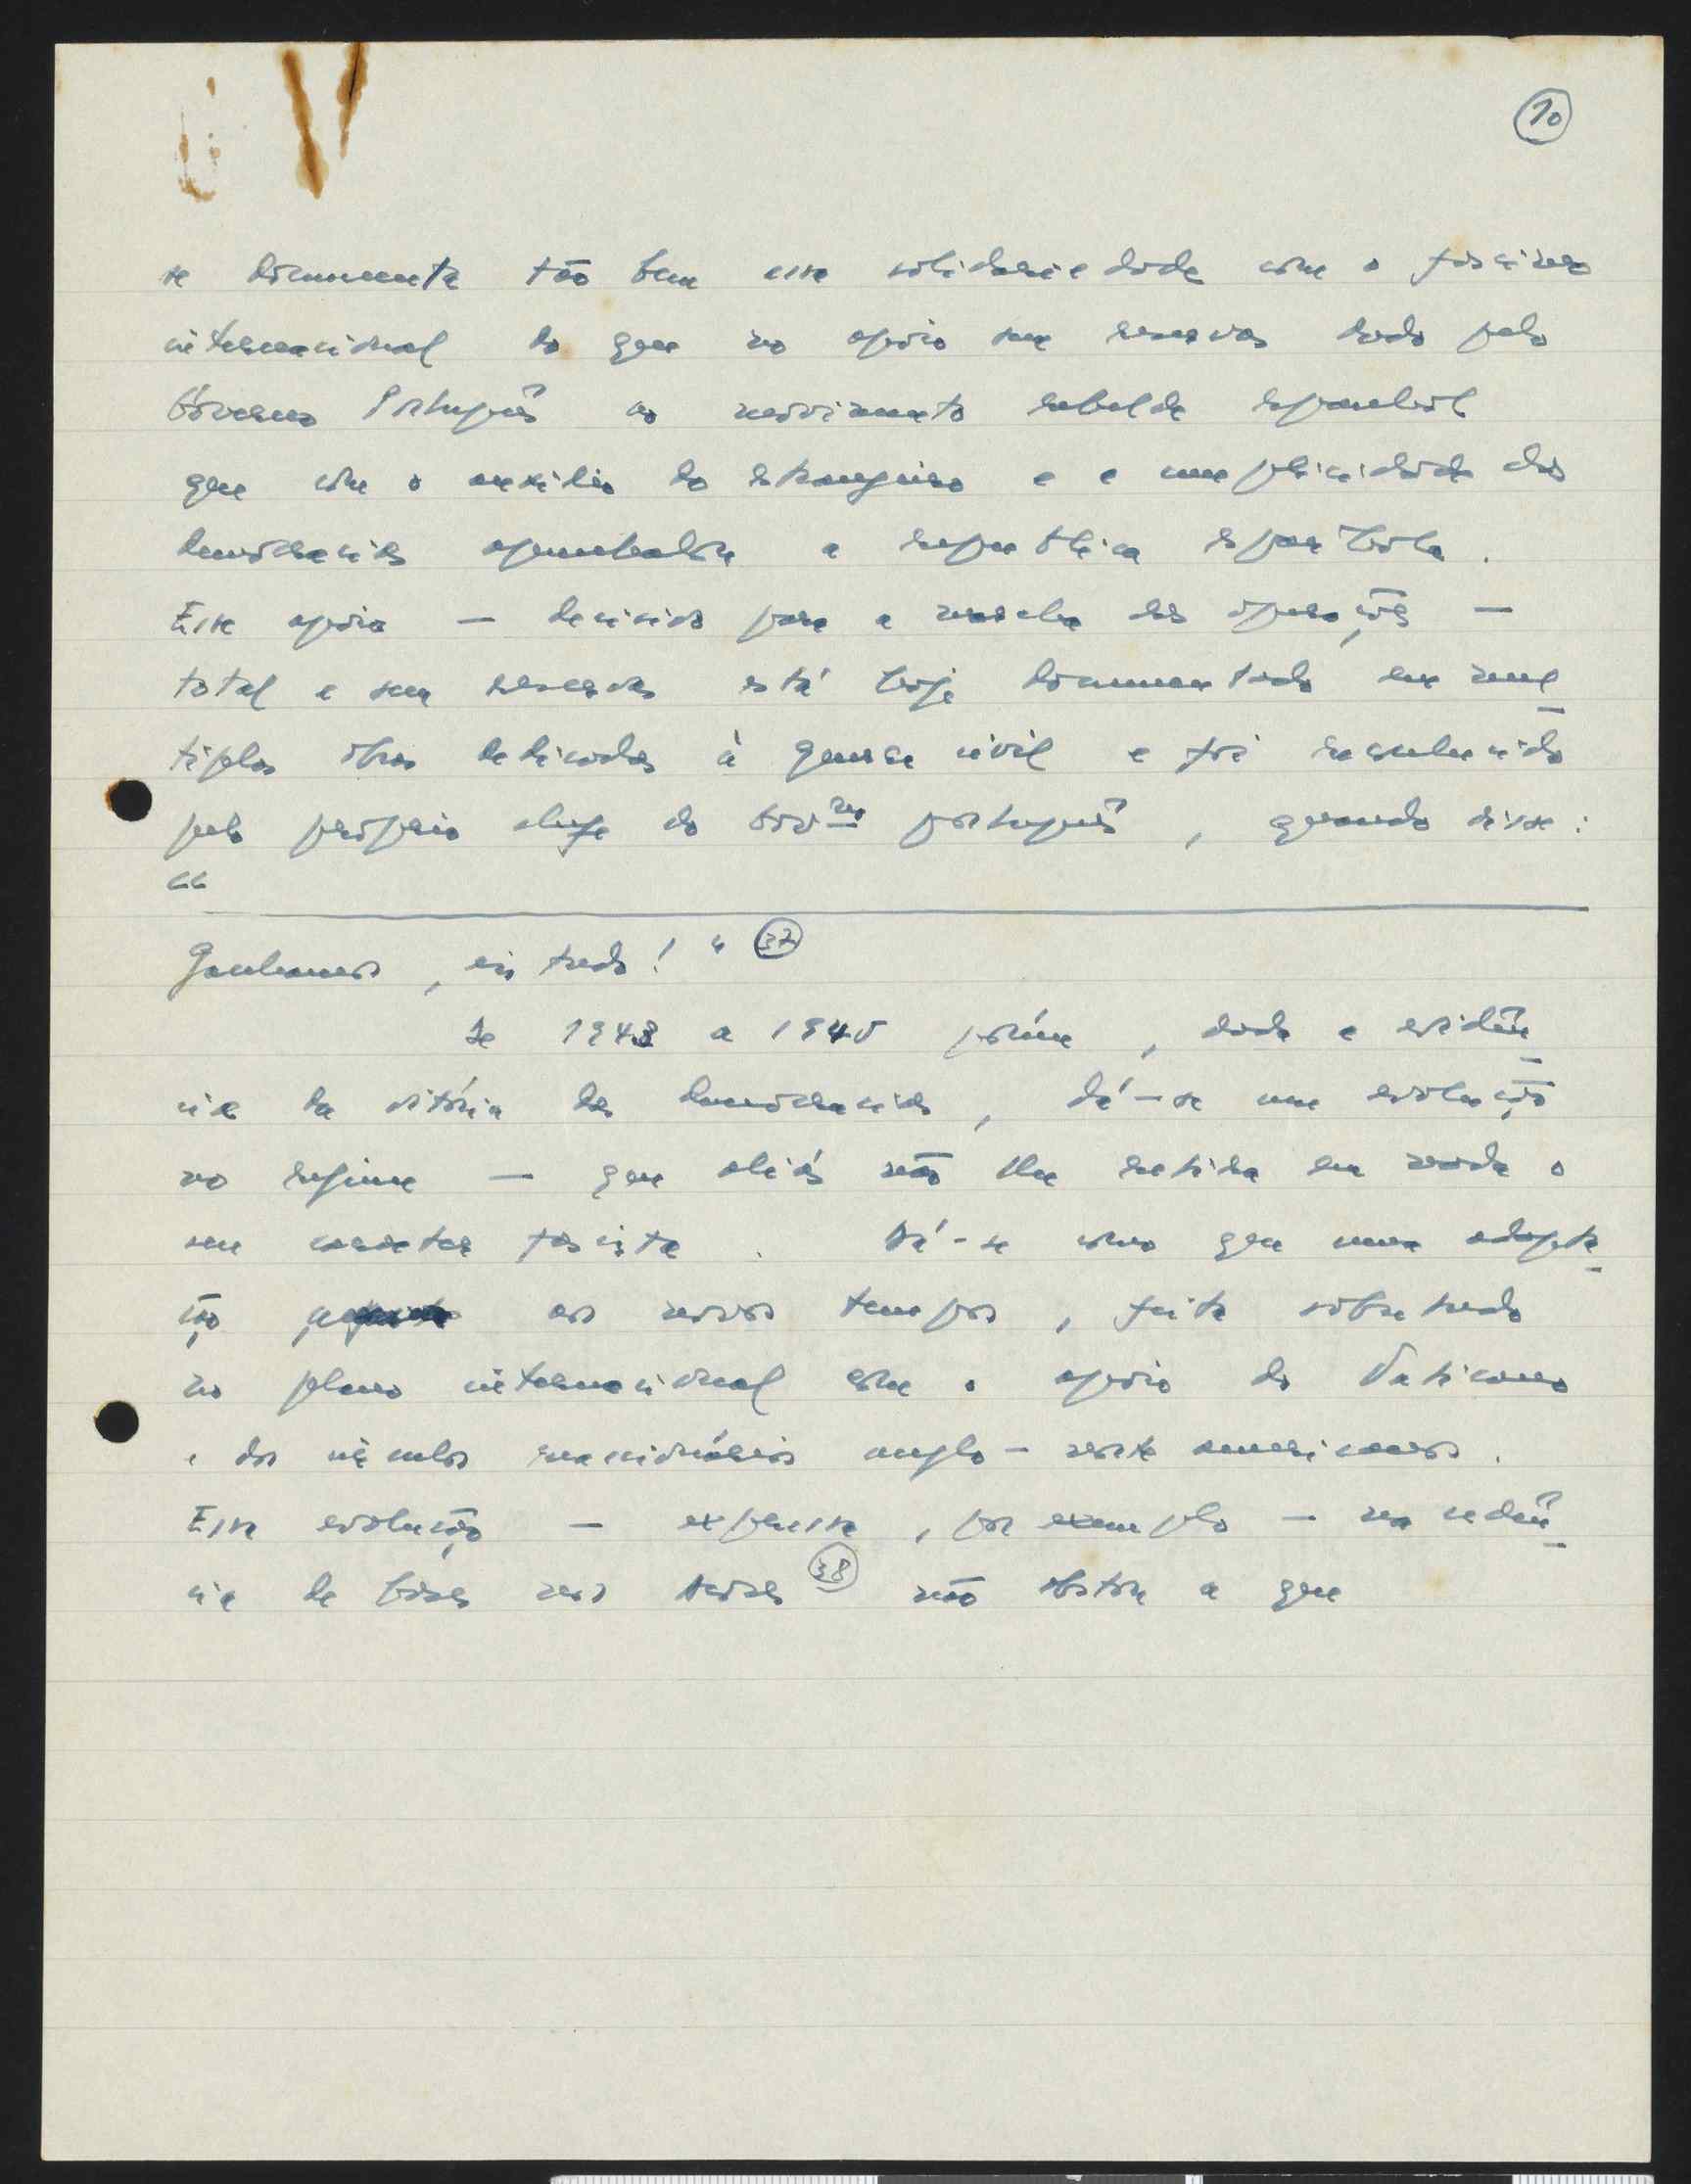 10
se documenta tão bem essa solidariedade com o fascismo
internacional do que no apoio sem reservas dado pelo
Govêrno Português ao movimento rebelde espanhol
que com o auxílio do estrangeiro e a cumplicidade das
democracias apunhalou a republica espanhola.
Esse apoio — decisivo para a marcha das operações —
total e sem reservas está hoje documentado em mul
tiplas obras dedicadas à guerra civil e foi reconhecido
pelo próprio chefe do Gov.no português, quando disse:
“
Ganhamos, eis tudo! " 37
De 1943 a 1945 porém, dada a evidên
cia da vitória das democracias, dá-se uma evolução
no regime — que aliás não lhe retira em nada o
seu caracter fascista. Dá-se como que uma adapta
ção aos novos tempos, feita sobretudo
no plano internacional com o apoio do Vaticano
e dos círculos reaccionários anglo-norte americanos.
Essa evolução — expressa, por exemplo — na cedên
cia de bases nos Açores 38 não obstou a que